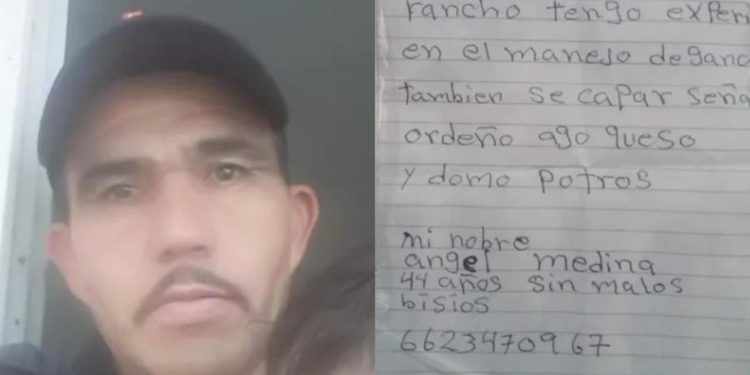 rancho tengo experi
en el manejo de gana
tambien se capar señal
ordeño ago queso
y domo potros
mi nobre
angel medina
44 años sin malos
bisios
6623470967